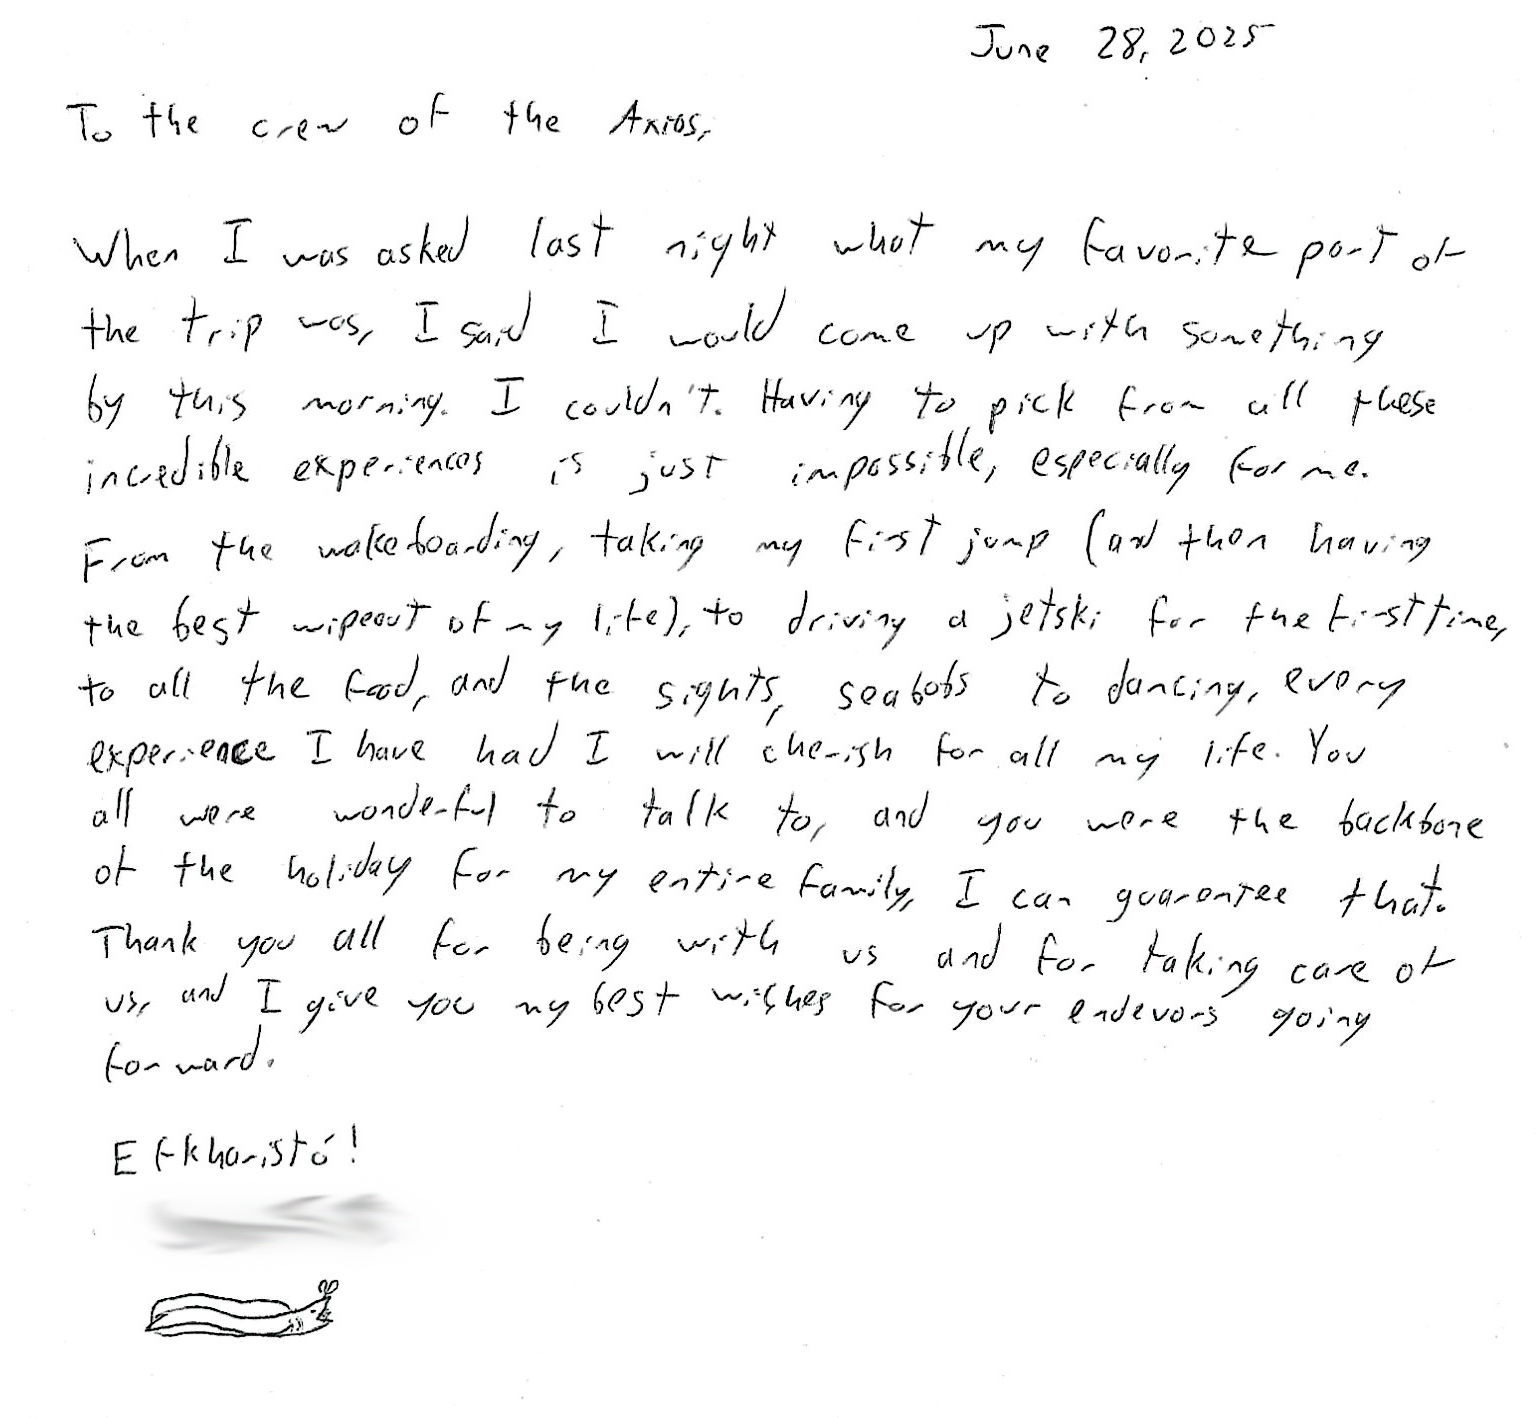 June 28, 2025
To the crew of the Axios,
When I was asked last night what my favorite part of
the trip was, I said I would come up with something
by this morning. I couldn't. Having to pick from all these
incredible experiences is just impossible, especially for me.
From the wakeboarding, taking my first jump (and then having
the best wipeout of my life), to driving a jetski for the first time,
to all the food, and the sights, seabobs to dancing, every
experience I have had I will cherish for all my life. You
all were wonderful to talk to, and you were the backbone
of the holiday for my entire family, I can guarentee that.
Thank you all for being with us and for taking care of
us, and I give you my best wishes for your endevors going
forward.
Efkharistó!